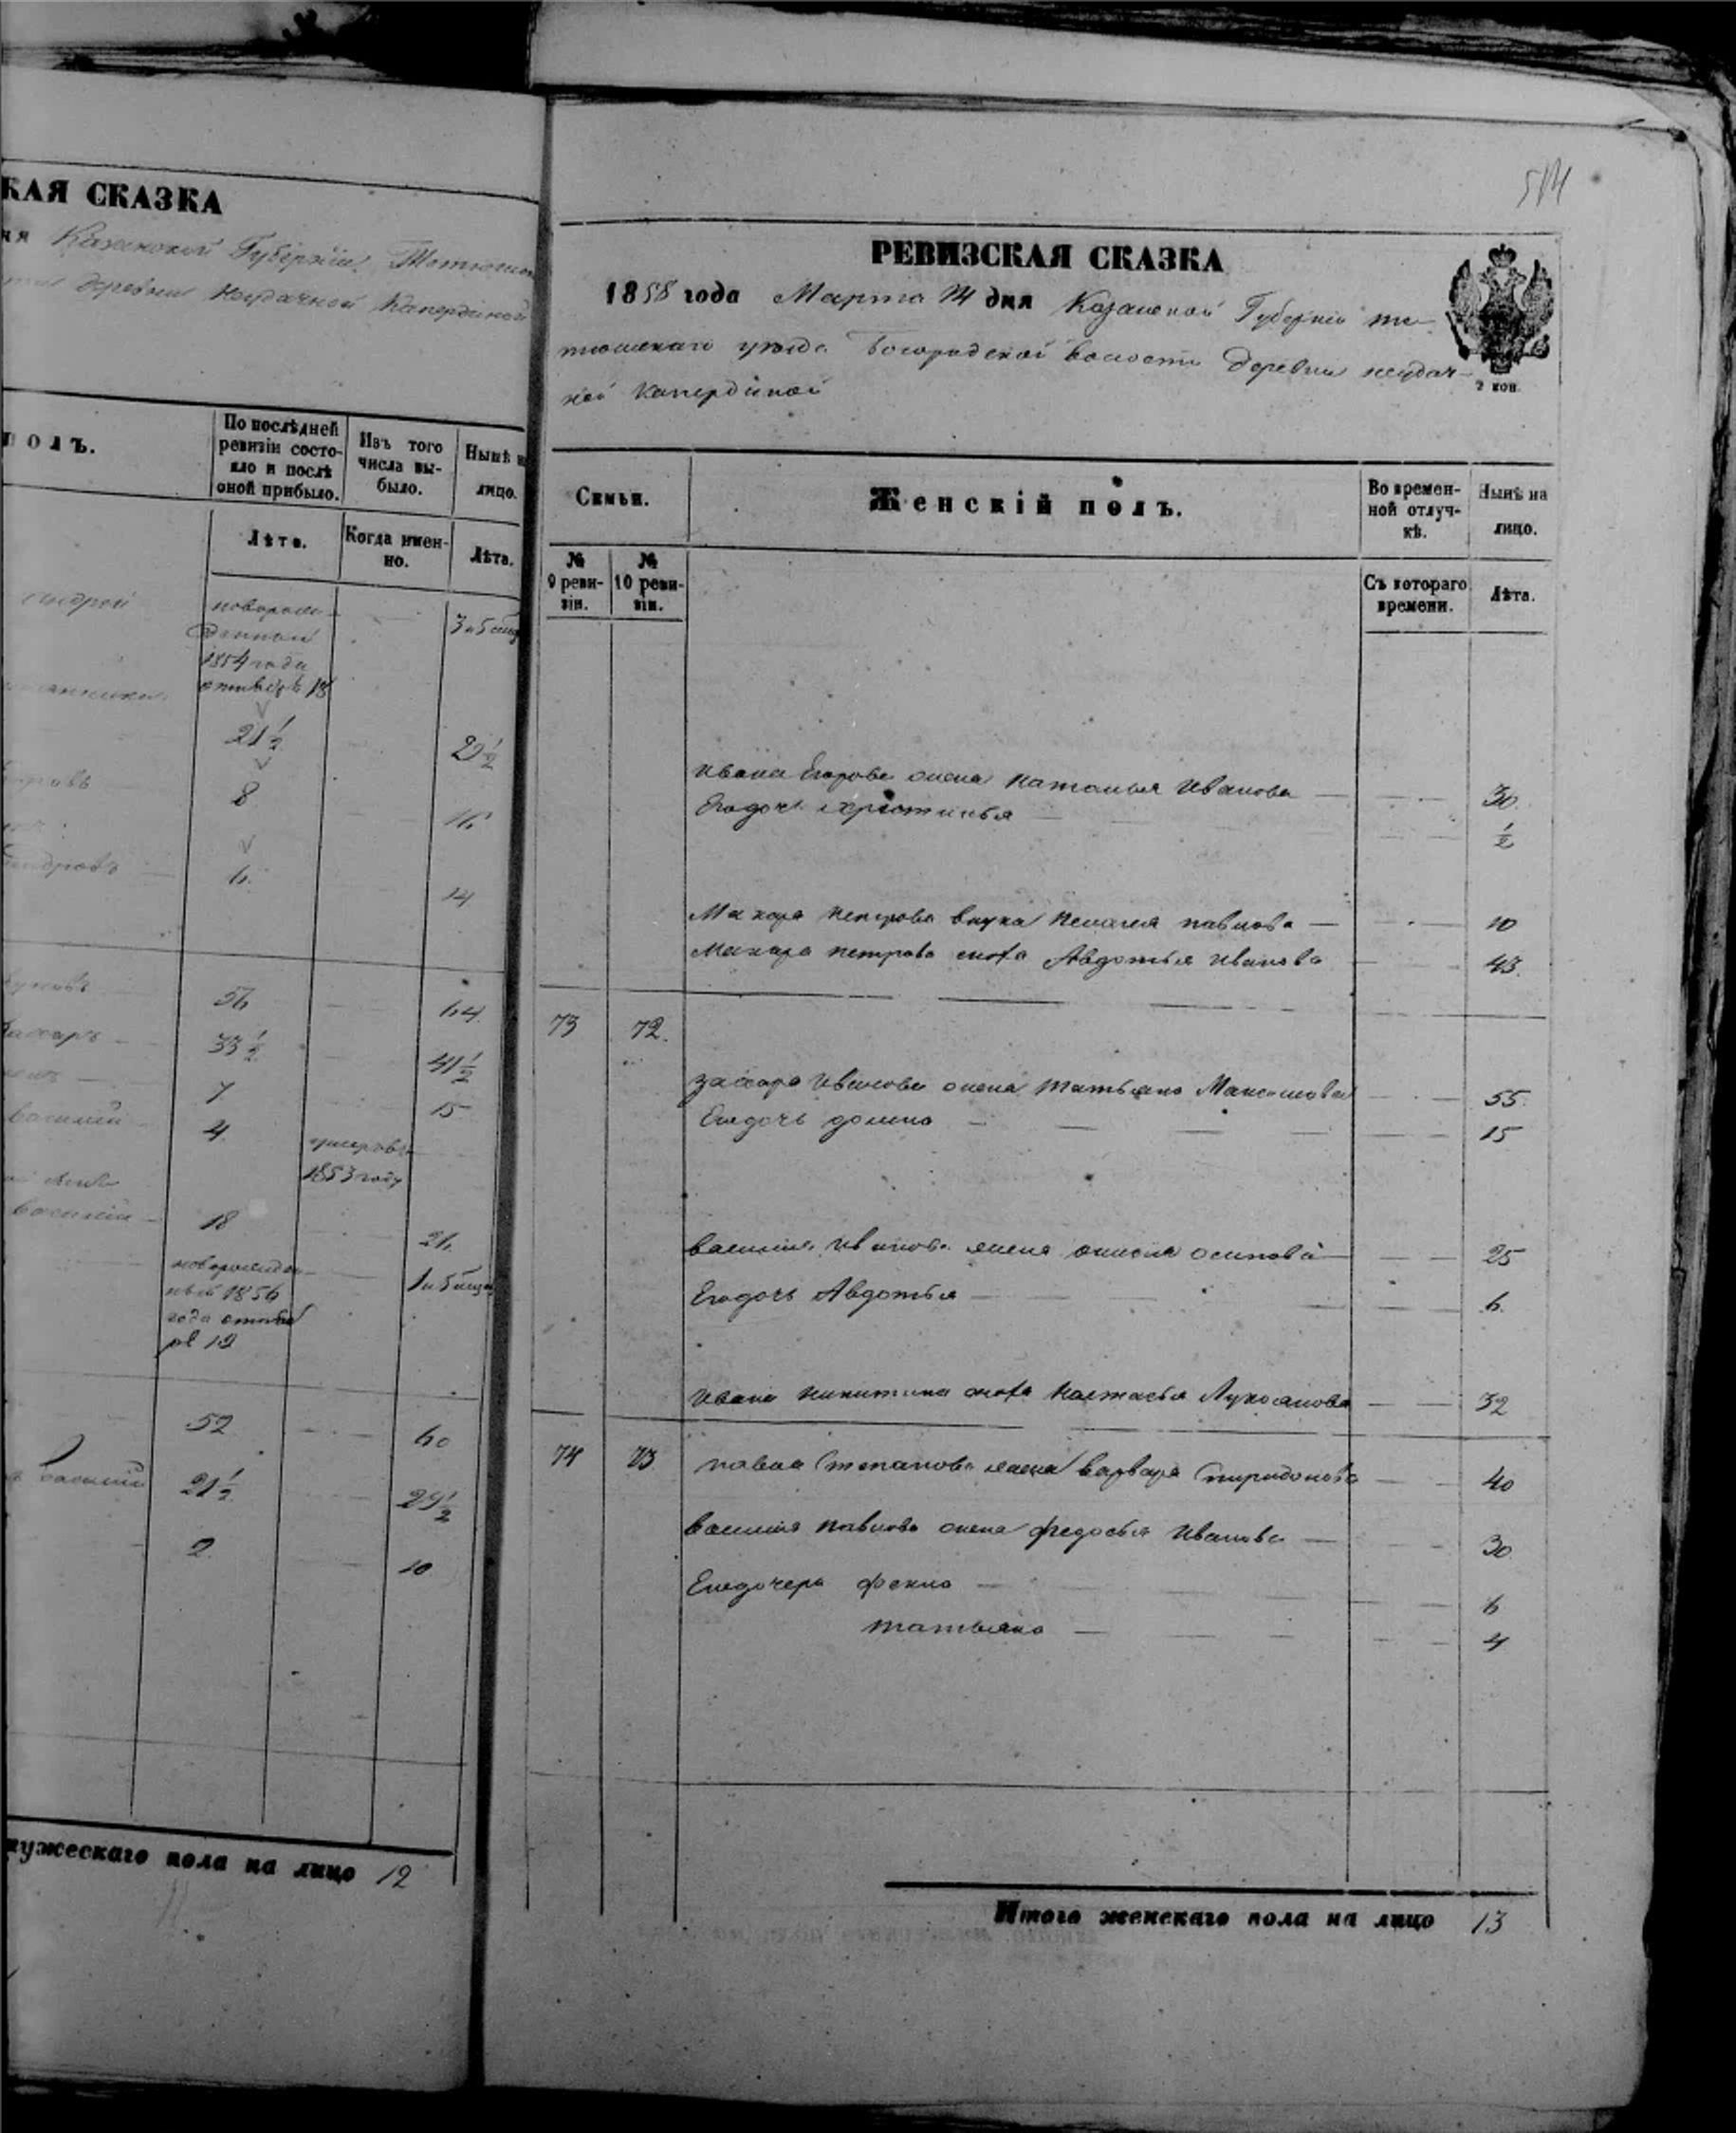 КАЯ СКАЗКА
ня Казанской Губерніи Тетюшск
деревни Неудачной Капердиной
полъ.
По послѣдней ревизіи состо-
яло и послѣ
оной прибыло.
Изъ того
числа вы-
было.
Нынѣ н
лицо.
Лѣта.
Когда имен-
но.
Лѣта.
новорож-
денный
1854 года
октября 18
3 и 5 мѣс
21 1/2
29 1/2
8
16
6.
14
56
64
33 1/2
41 1/2
7
15
василий
4.
умеръ въ
1853 году
василий
18
26
новорожден-
ный 1856
года октяб
ря 12
1 и 5 мѣся
52
60
василий
21 1/2
29 1/2
2.
10
мужескаго пола на лицо 12
514
РЕВИЗСКАЯ СКАЗКА
1858 года Марта 14 дня Казанской Губерніи те-
тюшскаго уѣзда Богородской волости деревни неудач-
ной Капердиной
2 коп.
Семьи.
Женскій полъ.
Во времен-
ной отлуч-
кѣ.
Нынѣ на
лицо.
№
9 реви-
зіи.
№
10 реви-
зіи.
Съ котораго
времени.
Лѣта.
Ивана Егорова жена Наталья Иванова 30
Его дочь христинья 1/2
Макара петрова внука пелагея павлова 10
Макара петрова сноха Авдотья Иванова 43
73 72.
захара Иванова жена татьяна Максимова 55
Его дочь домна 15
василия Иванова жена осипова 25
Его дочь Авдотья 6.
Ивана никитина сноха Настасья Лукоянова 32
74 73 павла Степанова жена варвара Спиридонова 40
василия павлова жена федосья Иванова 30
Его дочери фекла 6
татьяна 4
Итого женскаго пола на лицо 13